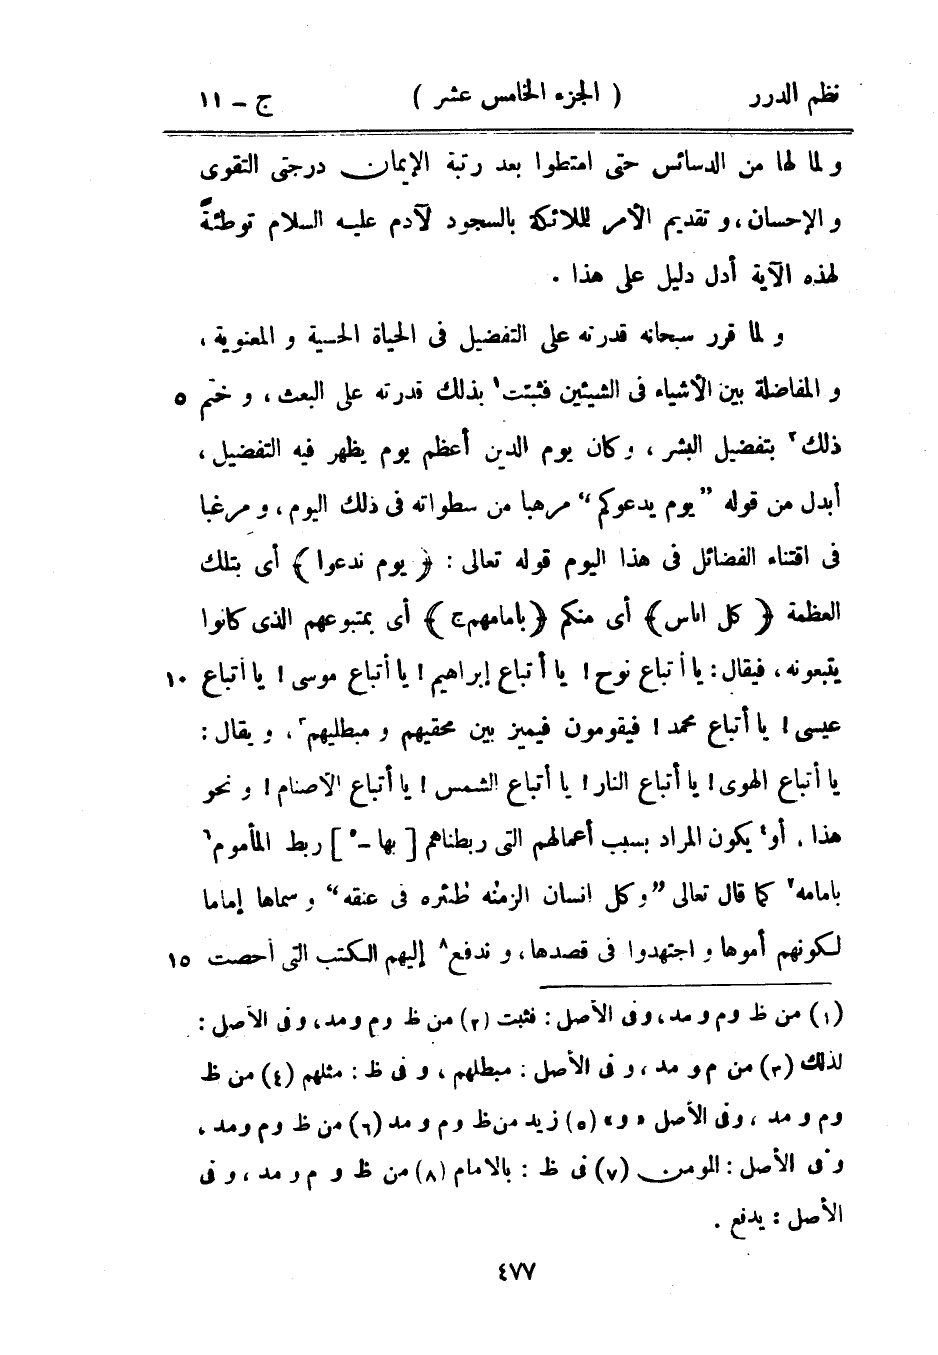 نظم الدرر ( الجزء الخامس عشر ) ج – ١١
و لما لها من الدسائس حتى امتطوا بعد رتبة الإيمان درجتى التقوى
و الإحسان ، و تقديم الأمر لللائكة بالسجود لآدم عليه السلام توطئةً
لهذه الآية أدل دليل على هذا .
و لما قرر سبحانه قدرته على التفضيل فى الحياة الحسية و المعنوية ،
و المفاضلة بين الأشياء فى الشيئين فثبتت١ بذلك قدرته على البعث ، و ختم ٥
ذلك٢ بتفضيل البشر ، وكان يوم الدين أعظم يوم يظهر فيه التفضيل ،
أبدل من قوله ”يوم يدعوكم“ مرهبا من سطواته فى ذلك اليوم ، و مرغبا
فى اقتناء الفضائل فى هذا اليوم قوله تعالى : ﴿ يوم ندعوا ﴾ أى بتلك
العظمة ﴿ كل اناس ﴾ أى منكم ﴿ بامامهم ج ﴾ أى بمتبوعهم الذى كانوا
يتبعونه ، فيقال : يا أتباع نوح ! يا أتباع إبراهيم ! يا أتباع موسى ! يا أتباع ١٠
عيسى ! يا أتباع محمد ! فيقومون فيميز بين محقيهم و مبطليهم٣ ، و يقال :
يا أتباع الهوى ! يا أتباع النار ! يا أتباع الشمس ! يا أتباع الأصنام ! و نحو
هذا ، أو٤ يكون المراد بسبب أعمالهم التى ربطناهم [ بها –٥ ] ربط المأموم٦
بامامه٧ كما قال تعالى ”وكل انسان الزمنٰه طٰئره فى عنقه“ و سماها إماما
لكونهم أموها و اجتهدوا فى قصدها ، و ندفع٨ إليهم الكتب التى أحصت ١٥
(١) من ظ و م و مد ، و فى الأصل : فثبت (٢) من ظ و م و مد ، و فى الأصل :
لذلك (٣) من م و مد ، و فى الأصل : مبطلهم ، و فى ظ : مثلهم (٤) من ظ
و م و مد ، و فى الأصل « و » (٥) زيد من ظ و م و مد (٦) من ظ و م و مد ،
و فى الأصل : المومن (٧) فى ظ : بالامام (٨) من ظ و م و مد ، و فى
الأصل : يدفع .
٤٧٧